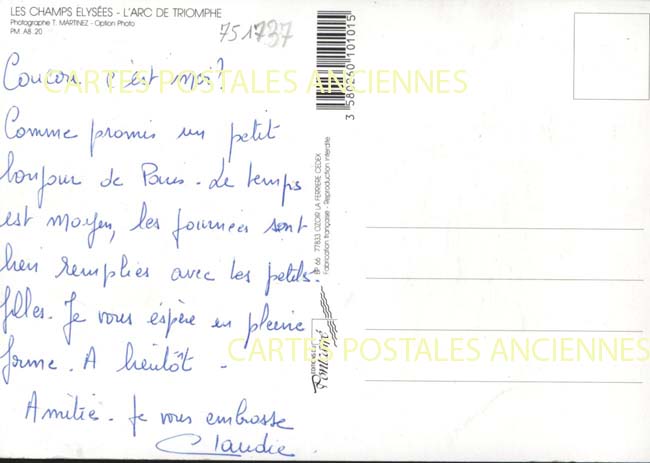 LES CHAMPS ELYSÉES - L'ARC DE TRIOMPHE
Photographe T. MARTINEZ - Option Photo
PM. A8. 20
751737
Coucou. c'est moi?
Comme promis un petit
bonjour de Paris. Le temps
est moyen, les journées sont
bien remplies avec les petites
filles. Je vous espère en pleine
forme. A bientôt -
Amitiés. Je vous embrasse
Claudie.
3 580260 101015
BP 66 77833 OZOIR LA FERRIERE CEDEX
Fabrication française - Reproduction interdite
CARTES POSTALES ANCIENNES
CARTES POSTALES ANCIENNES